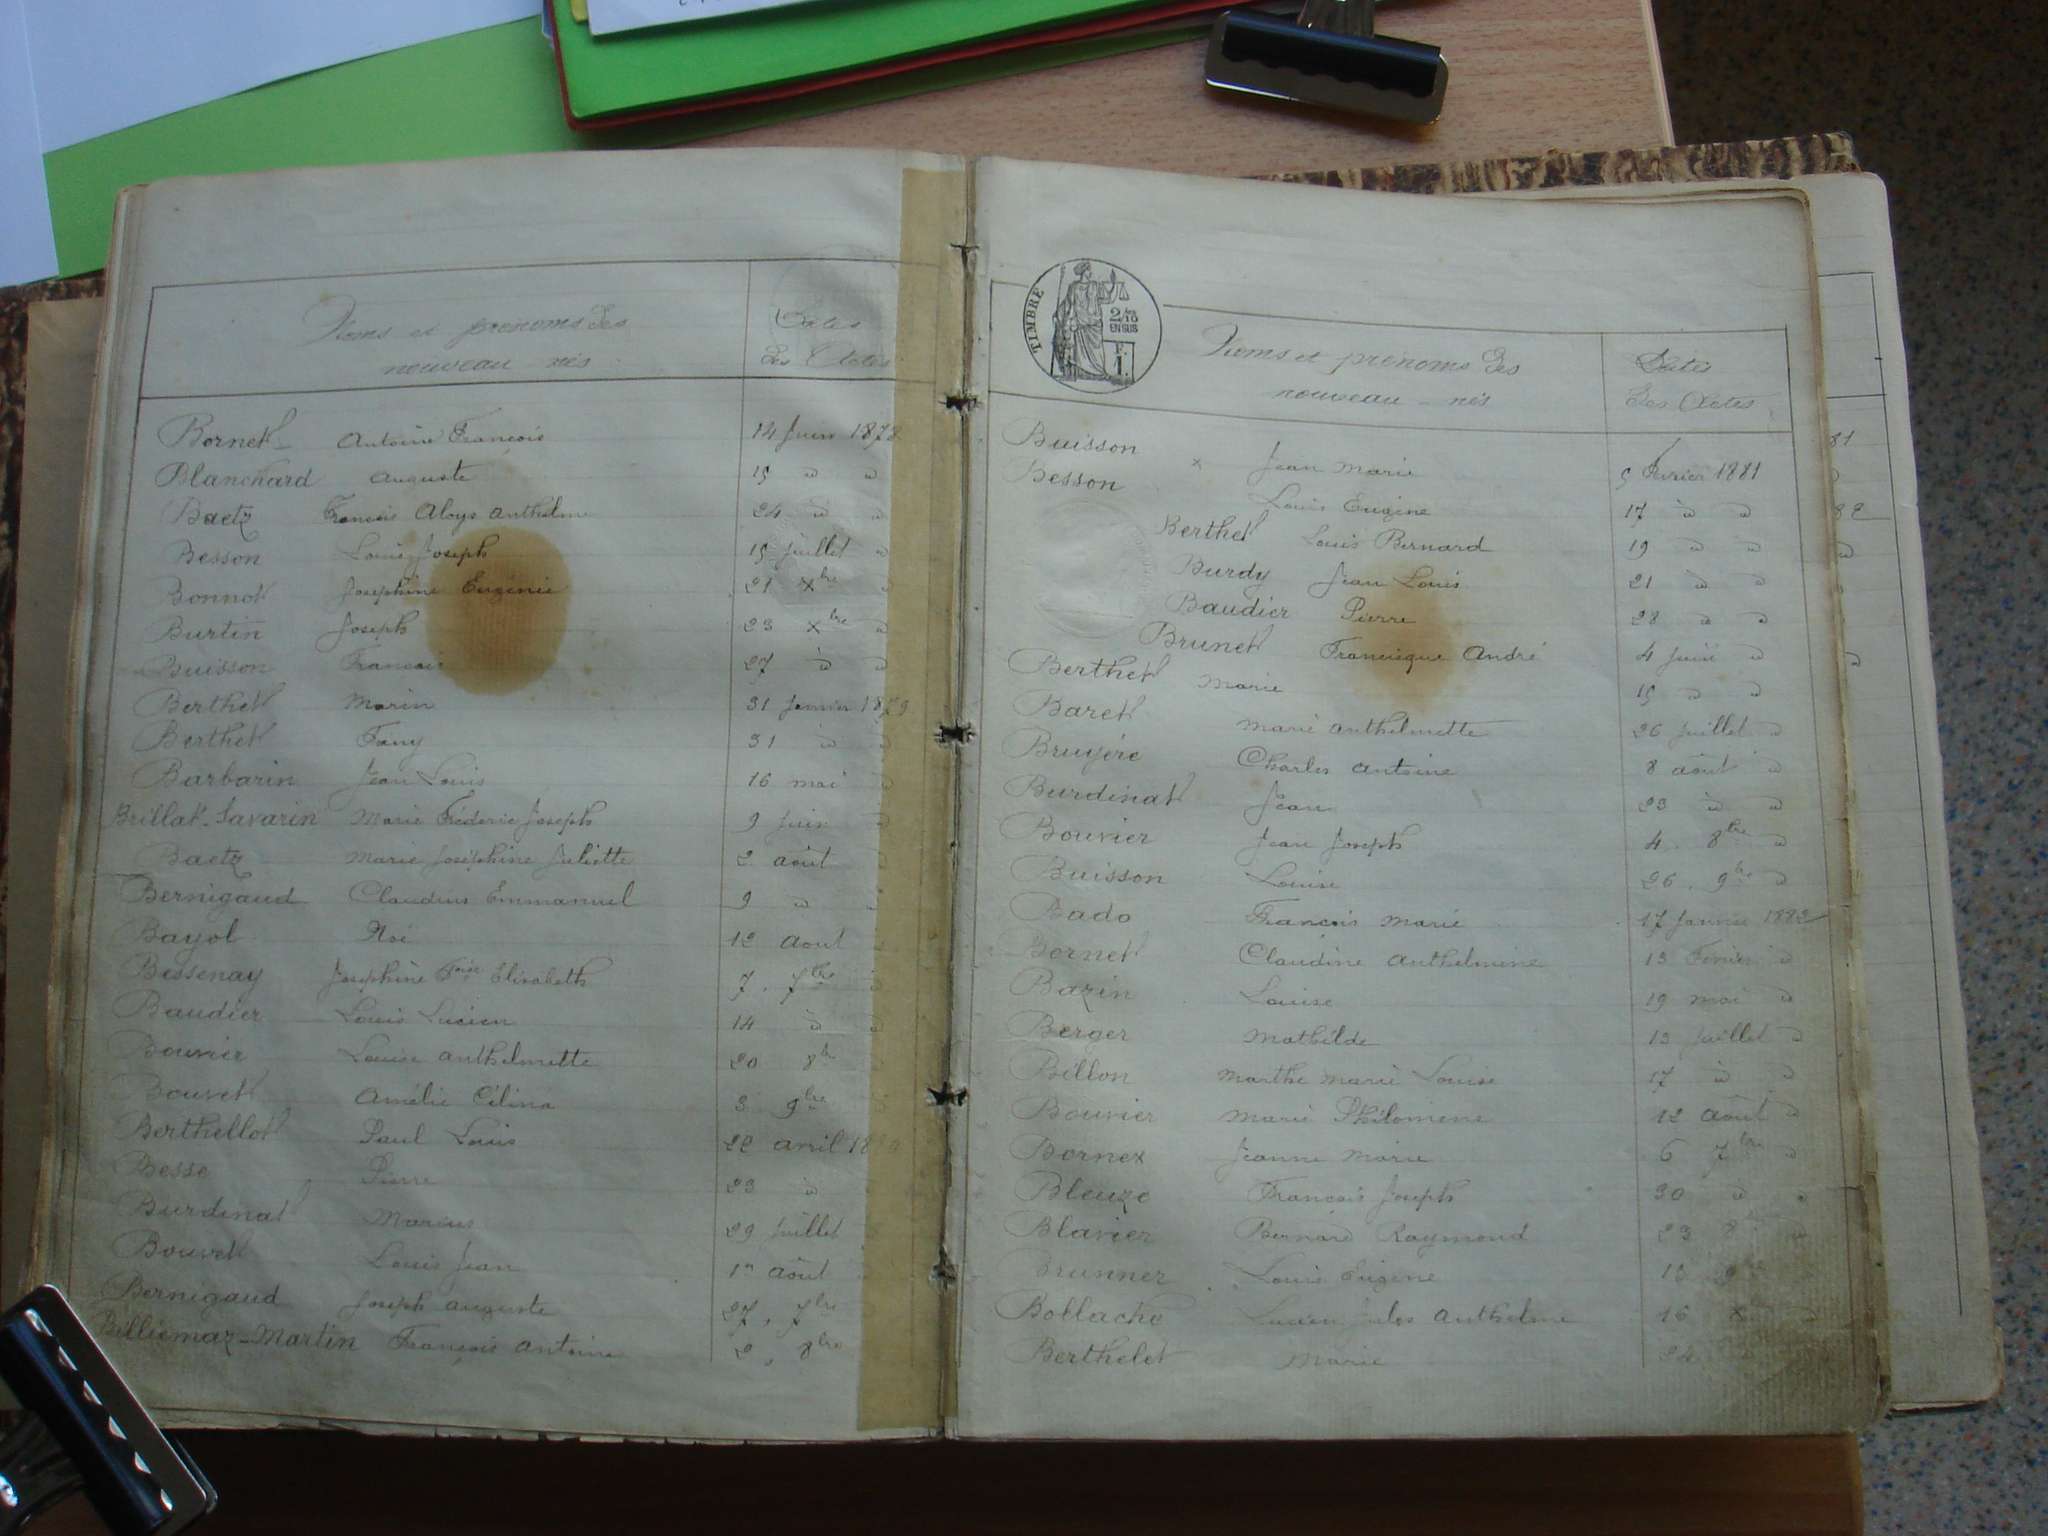 Noms et prénoms des
nouveau-nés
Dates
des Actes
Bornet Antoine François 14 Juin 1878
Blanchard Auguste 15 " "
Baetz François Aloys Anthelme 24 " "
Besson Louis Joseph 15 Juillet "
Bonnot Joséphine Eugénie 21 Xbre "
Burtin Joseph 23 Xbre "
Buisson François 27 " "
Berthet Marin 31 Janvier 1879
Berthet Fany 31 " "
Barbarin Jean Louis 16 mai "
Brillat-Savarin Marie Fréderic Joseph 9 Juin "
Baetz Marie Joséphine Juliette 2 août "
Bernigaud Claudius Emmanuel 9 " "
Bayol Noé 12 aout
Bessenay Joséphine Foise Elisabeth 7. 7bre "
Baudier Louis Lucien 14 " "
Bouvier Louise Anthelmette 20 8bre
Bouvet Amélie Célina 3 9bre
Berthellot Paul Louis 22 avril 1880
Besse Pierre 23 "
Burdinat Marius 29 Juillet
Bouvet Louis Jean 1er août
Bernigaud Joseph Auguste 27, 7bre
Billiemaz-Martin François Antoine 2, 8bre
TIMBRE
2/10
EN SUS
F.
1.
Noms et prénoms des
nouveau-nés
Dates
des Actes
Buisson x Jean Marie 5 Février 1881
Besson Louis Eugène 17 " "
Berthet Louis Bernard 19 " "
Burdy Jean Louis 21 " "
Baudier Pierre 28 " "
Brunet Francisque André 4 Juin "
Berthet Marie 15 " "
Baret Marie Anthelmette 26 Juillet "
Bruyére Charles Antoine 8 août "
Burdinat Jean 23 " "
Bouvier Jean Joseph 4. 8bre "
Buisson Louise 26. 9bre "
Bado François Marie 17 Janvier 1882
Bornet Claudine Anthelmine 13 Février "
Bazin Louise 19 mai "
Berger Mathilde 13 Juillet "
Billon Marthe Marie Louise 17 " "
Bouvier Marie Philomène 12 août "
Bornex Jeanne Marie 6 7bre "
Bleuze François Joseph 30 " "
Blavier Bernard Raymond 23 8bre "
Brunner Louis Eugène 9bre
Bollache Lucien Jules Anthelme 16 X "
Berthelet Marie 24
81
82